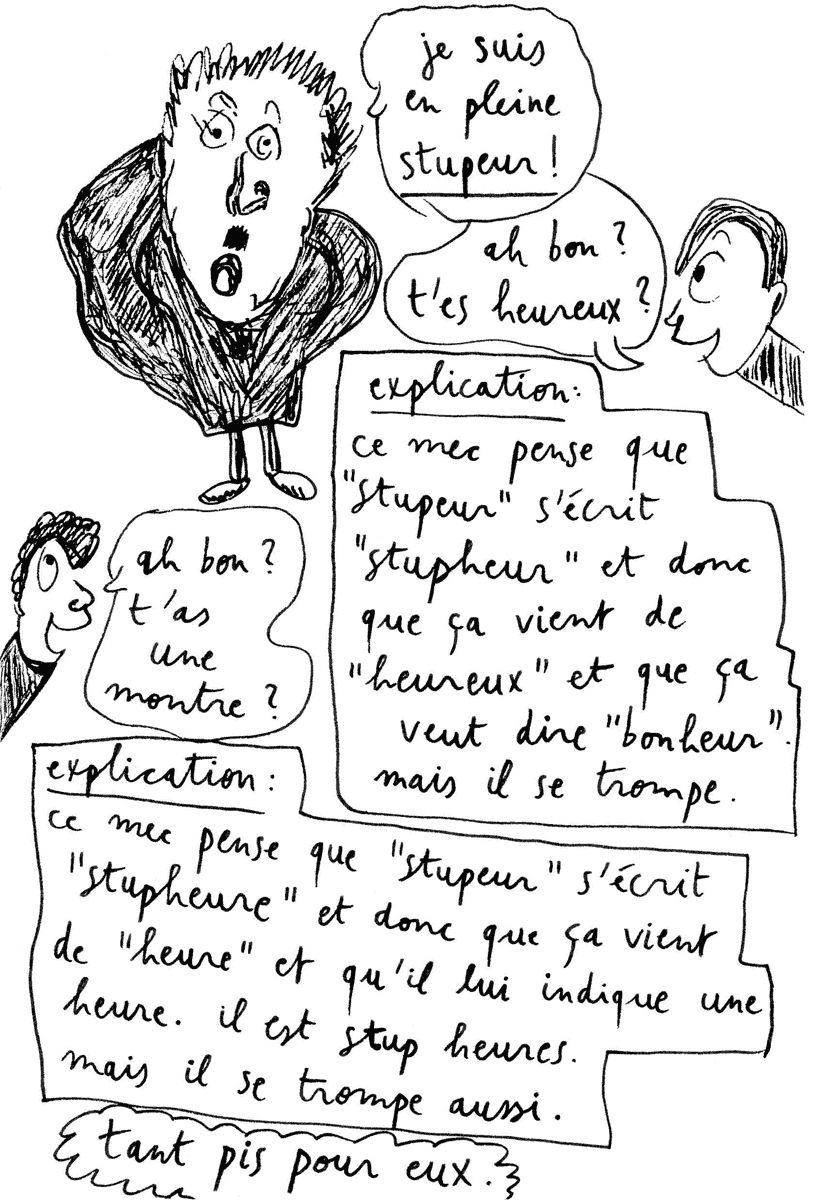 je suis
en pleine
stupeur !
ah bon ?
t'es heureux ?
explication:
ce mec pense que
"stupeur" s'écrit
"stupheur" et donc
que ça vient de
"heureux" et que ça
veut dire "bonheur".
mais il se trompe.
ah bon ?
t'as
une
montre ?
explication :
ce mec pense que "stupeur" s'écrit
"stupheure" et donc que ça vient
de "heure" et qu'il lui indique une
heure. il est stup heures.
mais il se trompe aussi.
tant pis pour eux.